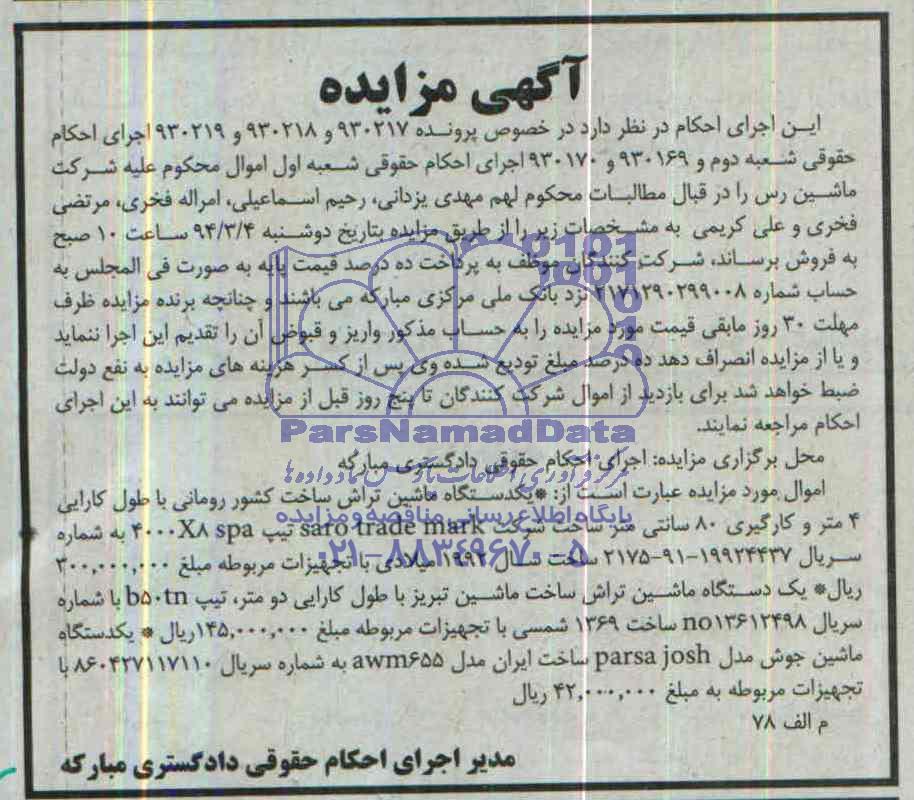 آگهی مزایده
ایـن اجرای احکام در نظر دارد در خصوص پرونده ۹۳۰۲۱۷ و ۹۳۰۲۱۸ و ۹۳۰۲۱۹ اجرای احکام
حقوقی شـعبه دوم و ۹۳۰۱۶۹ و ۹۳۰۱۷۰ اجرای احکام حقوقی شـعبه اول اموال محکوم علیه شـرکت
ماشین رس را در قبال مطالبـات محکوم لهم مهدی یزدانی، رحیم اسـماعیلی، امراله فخری، مرتضی
فخری و علی کریمی به مشـخصات زیر را از طریق مزایده بتاریخ دوشـنبه ۹۴/۳/۴ سـاعت ۱۰ صبح
به فروش برسـاند، شـرکت کنندگان موظف به پرداخت ده درصد قیمت پایه به صورت فی المجلس به
حساب شماره ۲۱۷۱۲۹۰۲۹۹۰۰۸ نزد بانک ملی مرکزی مبارکه می باشند و چنانچه برنده مزایده ظرف
مهلت ۳۰ روز مابقی قیمت مورد مزایده را به حسـاب مذکور واریز و قبوض آن را تقدیم این اجرا ننماید
و یا از مزایده انصراف دهد ده درصد مبلغ تودیع شـده وی پس از کسـر هزینه های مزایده به نفع دولت
ضبط خواهد شد برای بازدید از اموال شرکت کنندگان تا پنج روز قبل از مزایده می توانند به این اجرای
احکام مراجعه نمایند.
ParsNamadData
محل برگزاری مزایده: اجرای احکام حقوقی دادگستری مبارکه
مرکز فرآوری اطلاعات پارس نماد داده ها
اموال مورد مزایده عبارت اسـت از: *یکدسـتگاه ماشین تراش ساخت کشور رومانی با طول کارایی
پایگاه اطلاع رسانی مناقصه و مزایده
۴ متر و کارگیری ۸۰ سانتی متر ساخت شرکت saro trade mark تیپ ۴۰۰۰X۸ spa به شماره
سـریال ۱۹۹۲۴۴۳۷-۹۱-۲۱۷۵ ساخت سـال ۱۹۹۲ میلادی با تجهیزات مربوطه مبلغ ۳۰۰,۰۰۰,۰۰۰
۰۲۱-۸۸۳۴۹۶۷۰-۵
ریال* یک دسـتگاه ماشـین تراش ساخت ماشـین تبریز با طول کارایی دو متر، تیپ b۵۰tn با شماره
سریال no۱۳۶۱۲۴۹۸ ساخت ۱۳۶۹ شمسی با تجهیزات مربوطه مبلغ ۱۴۵,۰۰۰,۰۰۰ریال * یکدستگاه
ماشین جوش مدل parsa josh ساخت ایران مدل awm۶۵۵ به شماره سریال ۸۶۰۴۲۷۱۱۷۱۱۰ با
تجهیزات مربوطه به مبلغ ۴۲,۰۰۰,۰۰۰ ریال
م الف ۷۸
مدیر اجرای احکام حقوقی دادگستری مبارکه